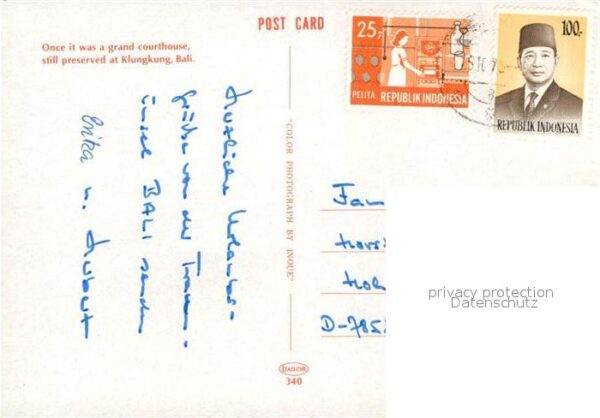 POST CARD
Once it was a grand courthouse,
still preserved at Klungkung, Bali.
25,-
PELITA
REPUBLIK INDONESIA
100,-
REPUBLIK INDONESIA
Herzliche Urlaubs-
grüße von der Traum-
insel BALI senden
Erika u. Hubert
"COLOR PHOTOGRAPH BY INOUE"
Fam
Horst
D-785
privacy protection
Datenschutz
340